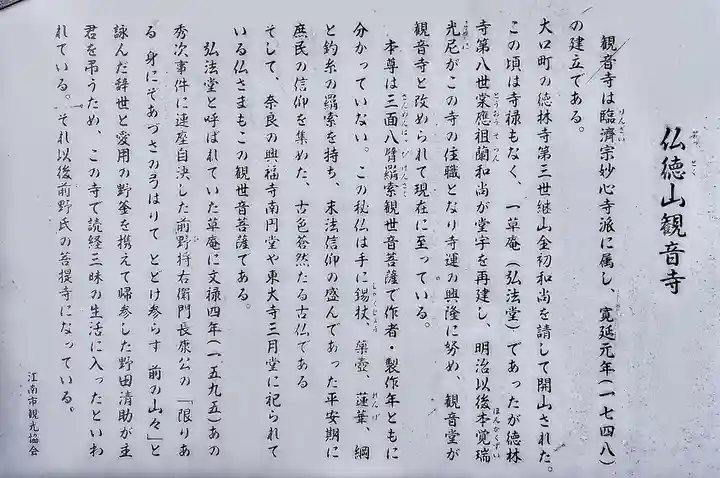 仏徳山観音寺
観音寺は臨済宗妙心寺派に属し、寛延元年(一七四八)
の建立である。
大口町の徳林寺第三世継山金初和尚を請して開山された。
この頃は寺禄もなく、一草庵（弘法堂）であったが徳林
寺第八世棠應祖蘭和尚が堂宇を再建し、明治以後本覚瑞
光尼がこの寺の住職となり寺運の興隆に努め、観音堂が
観音寺と改められて現在に至っている。
本尊は三面八臂羂索観世音菩薩で作者・製作年ともに
分かっていない。この秘仏は手に錫杖、薬壺、蓮華、綱
と釣糸の羂索を持ち、末法信仰の盛んであった平安期に
庶民の信仰を集めた、古色蒼然たる古仏である
そして、奈良の興福寺南円堂や東大寺三月堂に祀られて
いる仏さまもこの観世音菩薩である。
弘法堂と呼ばれていた草庵に文禄四年(一五九五)あの
秀次事件に連座自決した前野将右衛門長康公の「限りあ
る 身にぞあづさの弓はりて とどけ参らす 前の山々」と
詠んだ辞世と愛用の野釜を携えて帰参した野田清助が主
君を弔うため、この寺で読経三昧の生活に入ったといわ
れている。それ以後前野氏の菩提寺になっている。
江南市観光協会